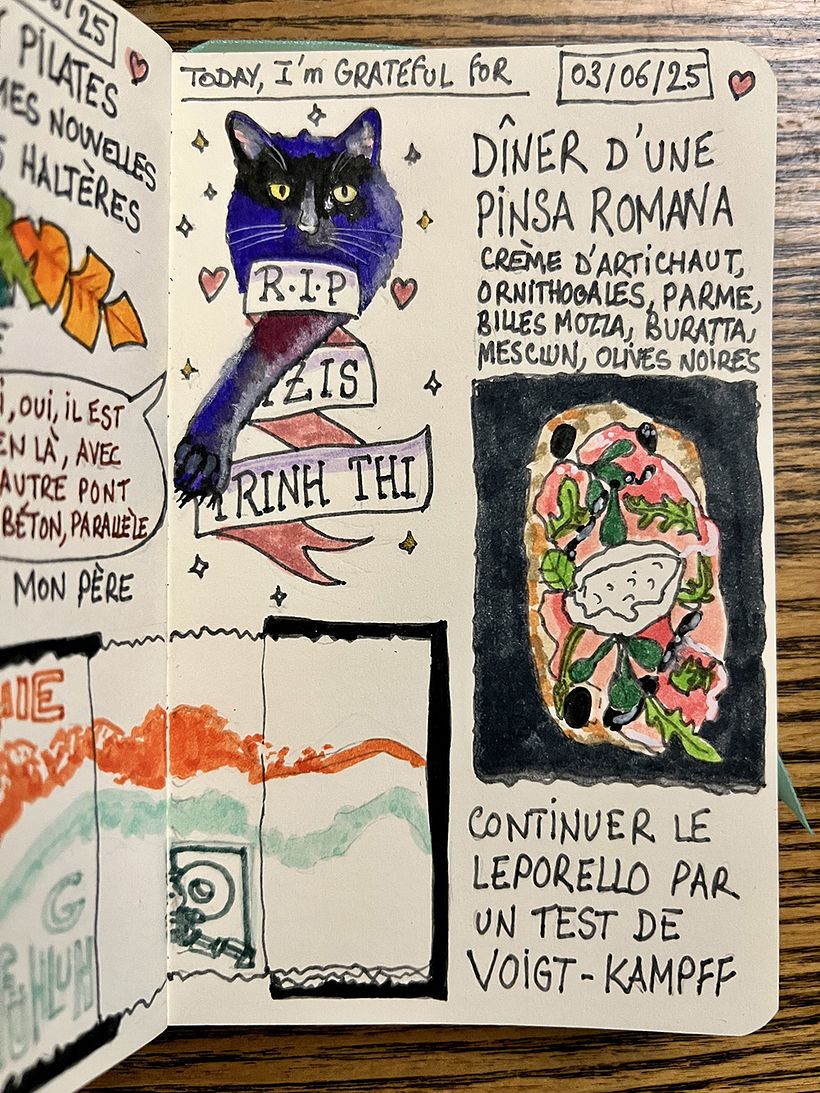 /25
PILATES
MES NOUVELLES
HALTÈRES
OUI, IL EST
LÀ, AVEC
AUTRE PONT
BÉTON, PARALLÈLE
MON PÈRE
TODAY, I'm GRATEFUL FOR
03/06/25
R·I·P
IZIS
TRINH THI
DÎNER D'UNE
PINSA ROMANA
CRÈME D'ARTICHAUT,
ORNITHOGALES, PARME,
BILLES MOZZA, BURATTA,
MESCLUN, OLIVES NOIRES
CONTINUER LE
LEPORELLO PAR
UN TEST DE
VOIGT-KAMPFF
G